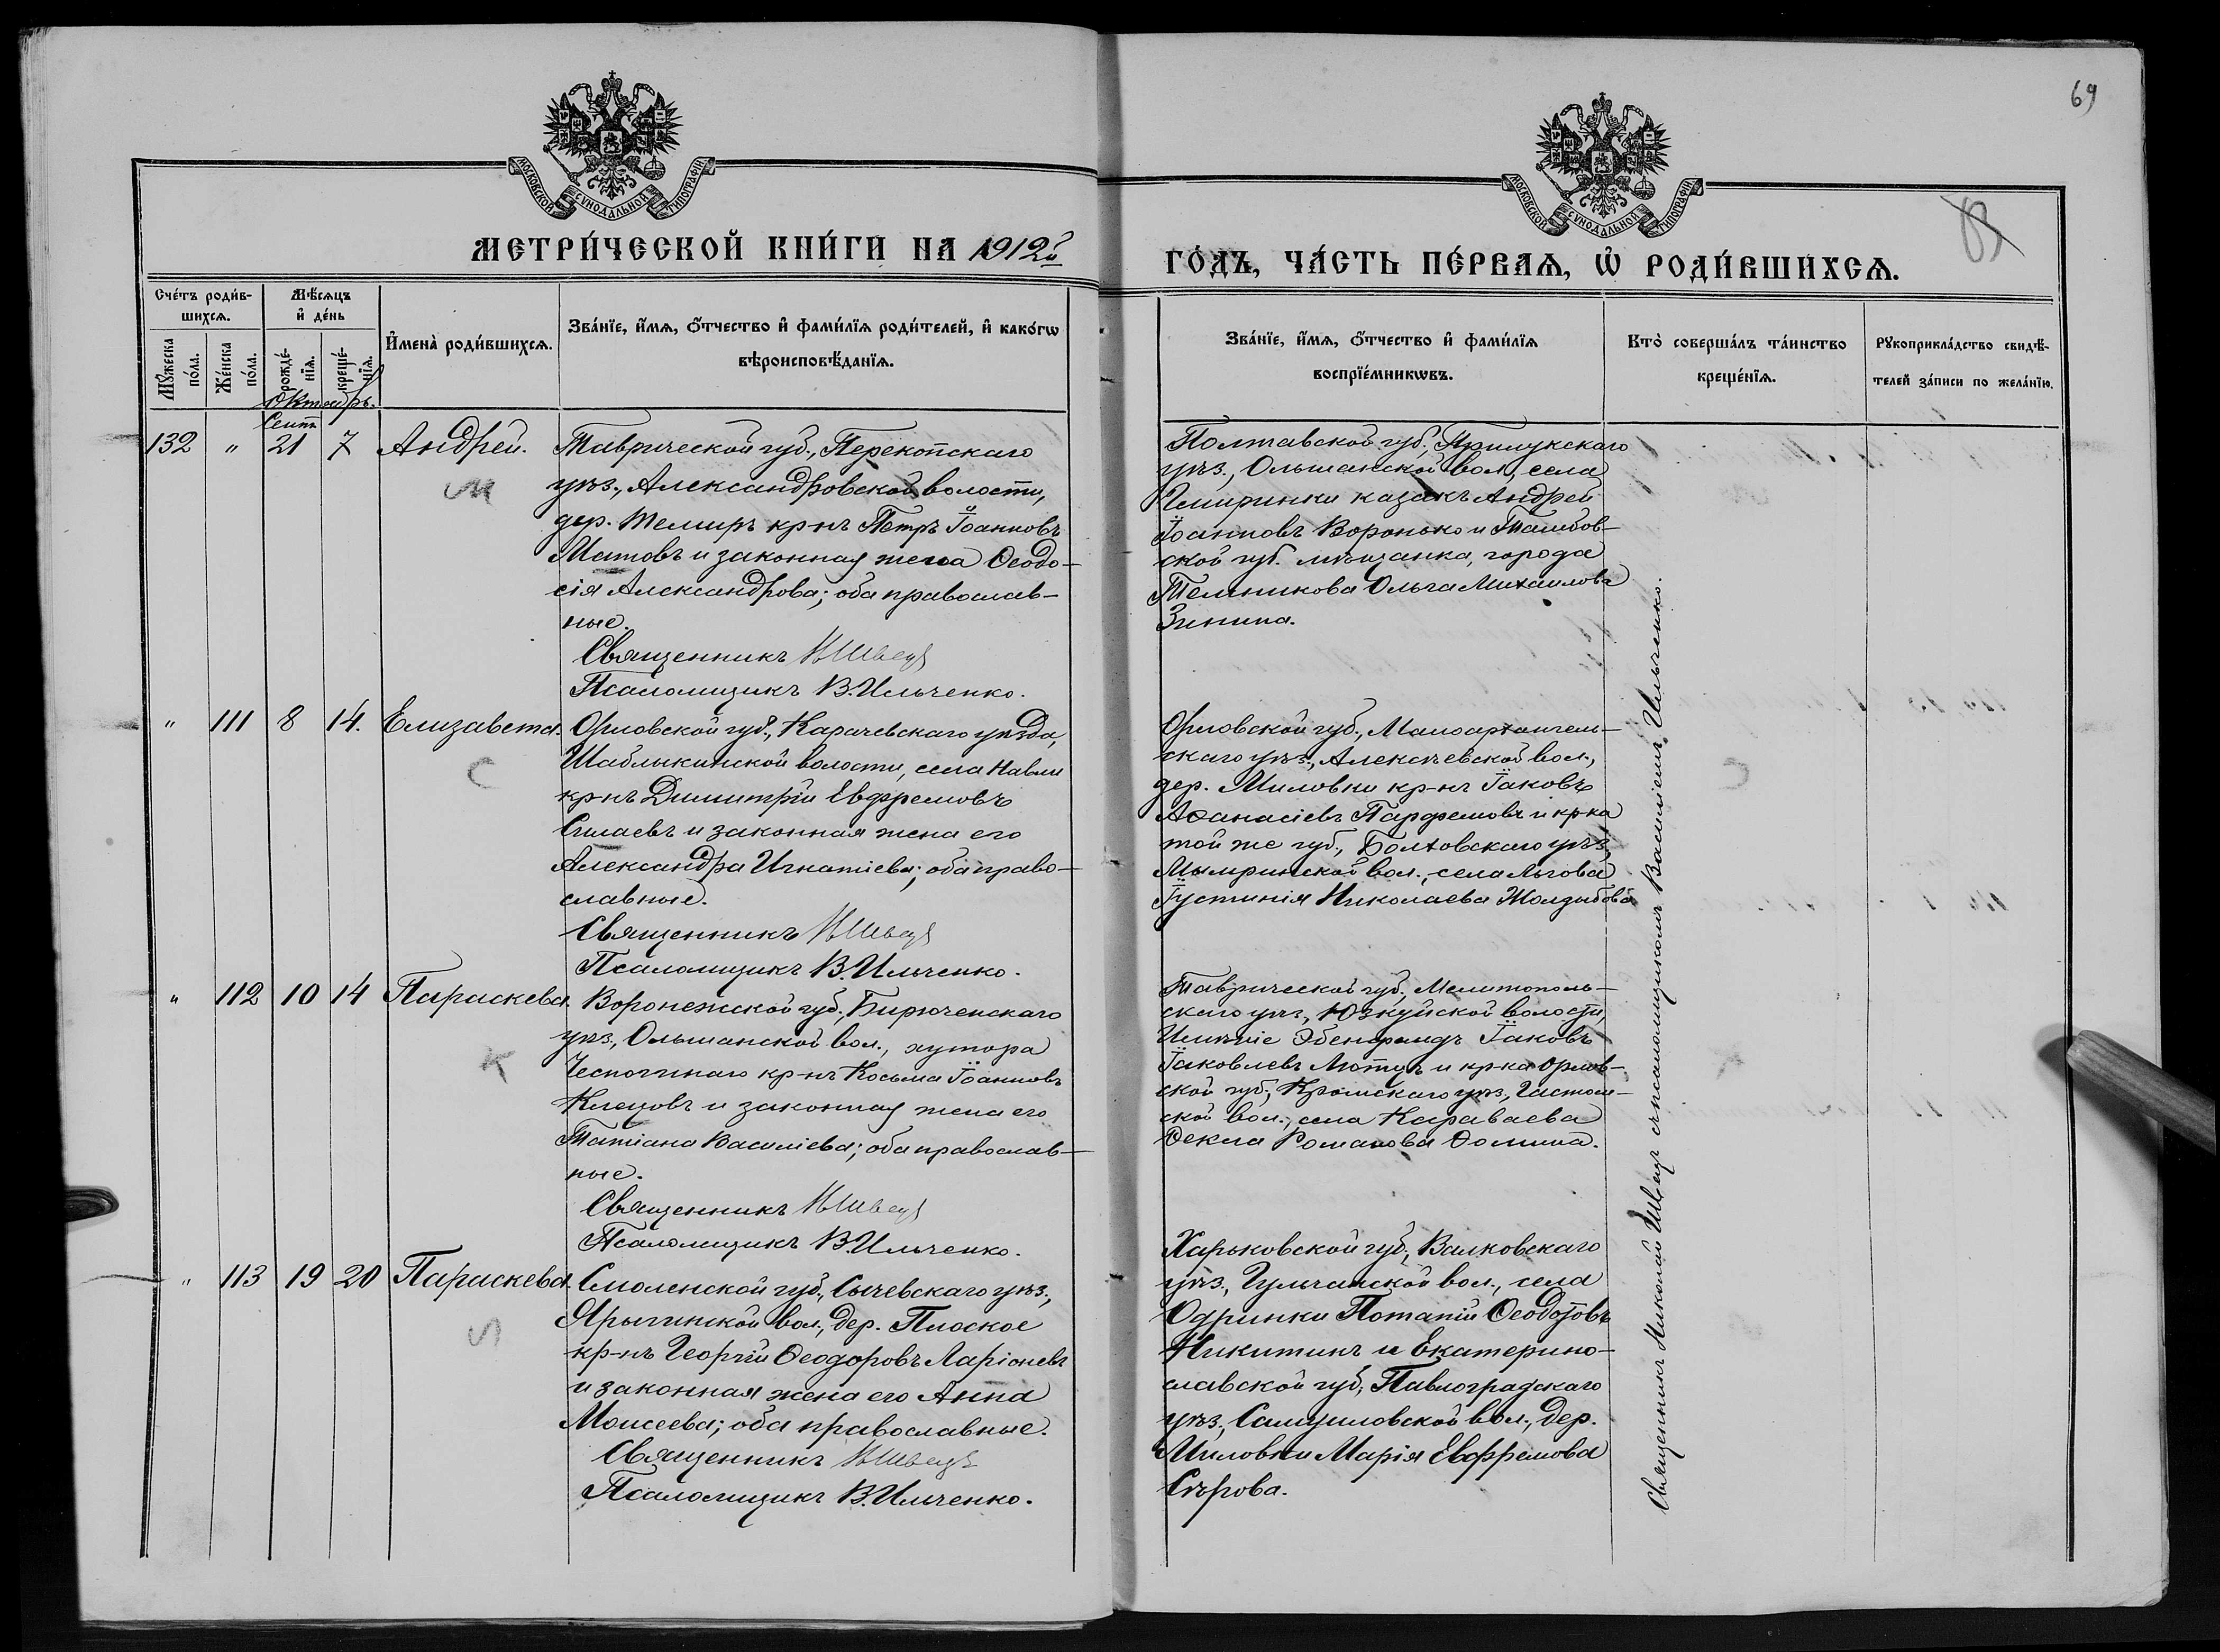 69
МОСКОВСКОЙ СУНОДАЛЬНОЙ ТИПОГРАФІИ
МОСКОВСКОЙ СУНОДАЛЬНОЙ ТИПОГРАФІИ
МЕТРИ́ЧЕСКОЙ КНИ́ГИ НА 1912й
ГО́ДЪ, ЧА́СТЬ ПЕ́РВАѦ, Ѡ҆ РОДИ́ВШИХСѦ.
Сче́тъ роди́в-
шихсѧ.
Мѣ́сѧцъ
и҆ де́нь
Мꙋ́жеска
по́ла.
Же́нска
по́ла.
рожде́-
нїѧ.
креще́-
нїѧ.
И҆мена̀ роди́вшихсѧ.
Зва́нїе, и҆́мѧ, ѻ҆́тчество и҆ фами́лїѧ роди́телей, и҆ како́гѡ
вѣроисповѣ́данїѧ.
Зва́нїе, и҆́мѧ, ѻ҆́тчество и҆ фами́лїѧ
воспрїе́мникѡвъ.
Кто̀ соверша́лъ та́инство
креще́нїѧ.
Рꙋкоприкла́дство свидѣ́-
телей за́писи по жела́нїю.
Октябрь.
Сент.
132 " 21 7 Андрей.
Таврической губ., Перекопскаго
уѣз., Александровской волости,
дер. Темиръ кр-нъ Петръ Іоанновъ
Матовъ и законная жена Ѳеодо-
сія Александрова; оба православ-
ные.
Священникъ Н Швецъ
Псаломщикъ В. Ильченко.
Полтавской губ., Прилукскаго
уѣз., Ольшанской вол., села
казакъ Андрей
Іоанновъ Воронько и Тамбов-
ской губ. мѣщанка, города
Темникова Ольга Михаилова
Зинина.
" 111 8 14. Елизавета.
Орловской губ., Карачевскаго уѣзда,
Шаблыкинской волости, села Навли
кр-нъ Димитрій Евфремовъ
Силаевъ и законная жена его
Александра Игнатіева; оба право-
славные.
Священникъ Н Швецъ
Псаломщикъ В. Ильченко.
Орловской губ., Малоархангель-
скаго уѣз., Алексѣевской вол.,
дер. Миловки кр-нъ Іаковъ
Аѳанасіевъ Парфемовъ и кр-ка
той же губ., Болховскаго уѣз.,
Мымринской вол., села Льгова
Іустинія Николаева
" 112 10 14 Параскева.
Воронежской губ., Бирюченскаго
уѣз., Ольшанской вол., хутора
кр-нъ Косьма Іоанновъ
Клецовъ и законная жена его
Татіана Василіева; оба православ-
ные.
Священникъ Н Швецъ
Псаломщикъ В. Ильченко.
Таврической губ., Мелитополь-
скаго уѣз., Юзкуйской волости,
Имѣніе Эбенфельдъ Іаковъ
Іаковлевъ и кр-ка Орлов-
ской губ., Кромскаго уѣз.,
ской вол., села Караваева
Ѳекла Романова Ѳомина.
" 113 19 20 Параскева.
Смоленской губ., Сычевскаго уѣз.,
Ярыгинской вол., дер. Плоское
кр-нъ Георгій Ѳеодоровъ Ларіоневъ
и законная жена его Анна
Моисеева; оба православные.
Священникъ Н Швецъ
Псаломщикъ В. Ильченко.
Харьковской губ., Валковскаго
уѣз., вол., села
Одринки Потапій Ѳеодотовъ
Никитинъ и Екатерино-
славской губ., Павлоградскаго
уѣз., вол., дер.
Миловки Марія Евфремова
Сѣрова.
Священникъ Николай Швецъ съ псаломщикомъ Василіемъ Ильченко.